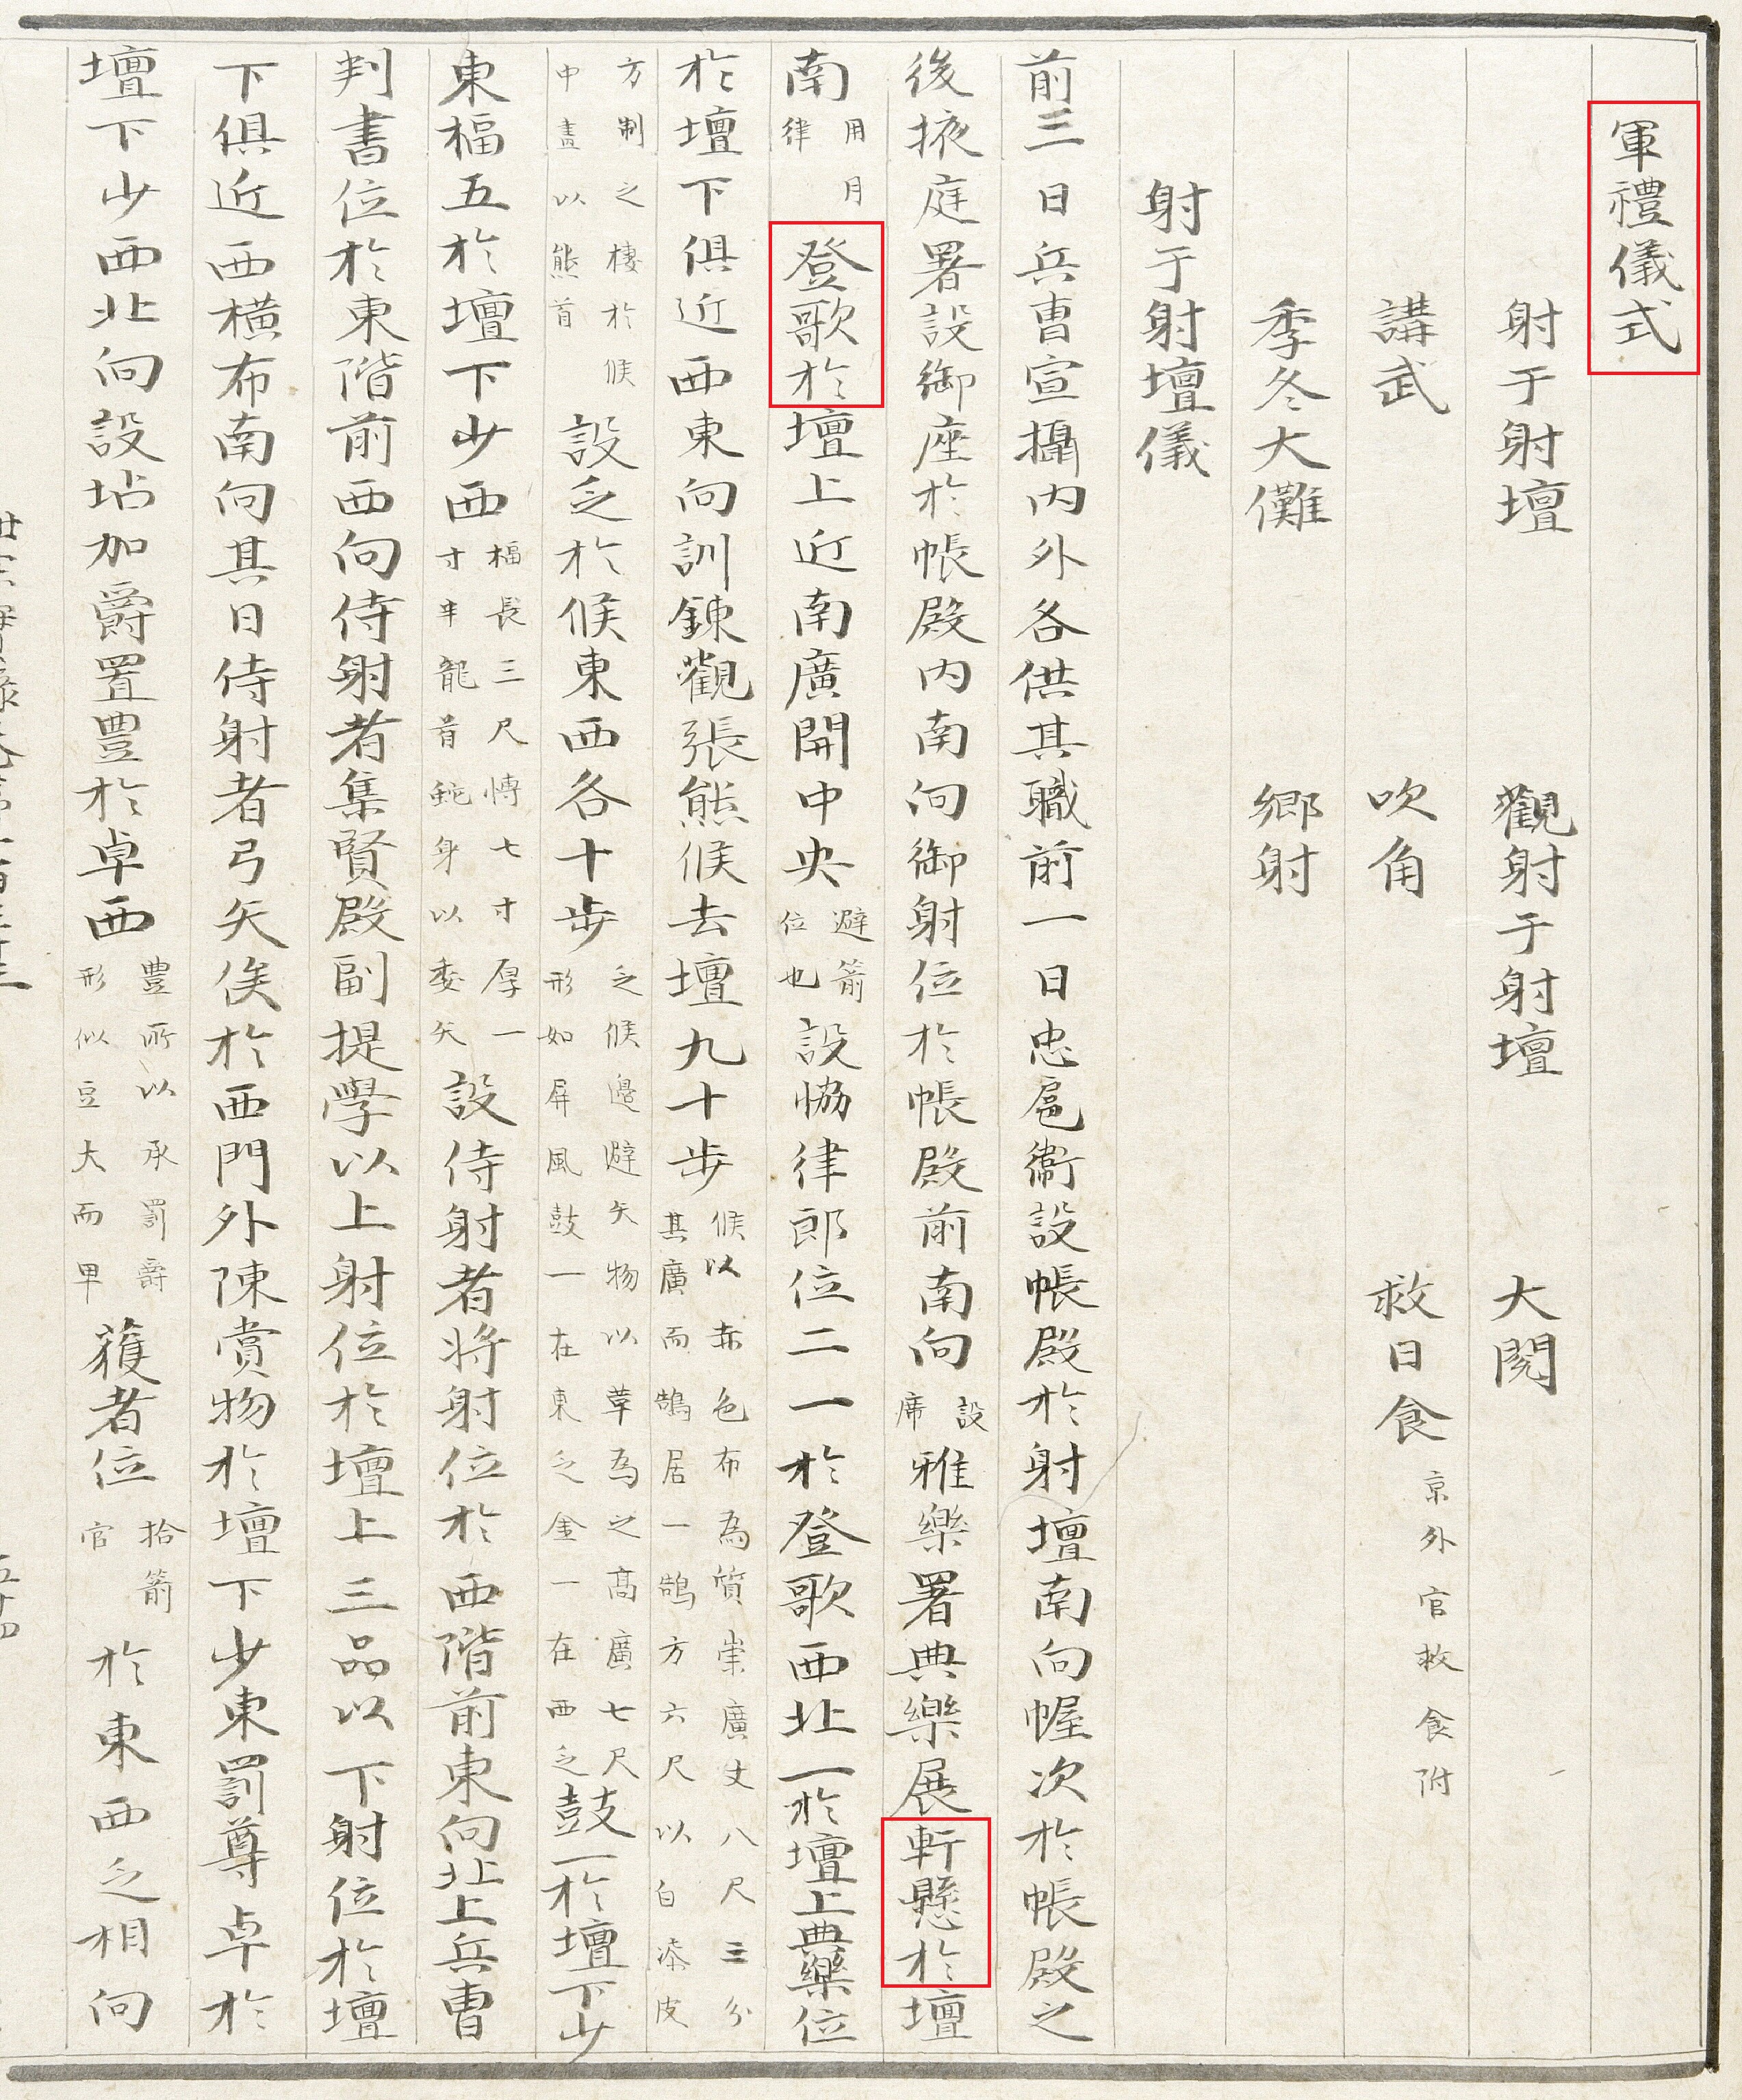 軍禮儀式
射于射壇 觀射于射壇 大閱
講武 吹角 救日食 京外官救食附
季冬大儺 鄉射
射于射壇儀
前三日兵曹宣攝內外各供其職前一日忠扈衛設帳殿於射壇南向幄次於帳殿之
後掖庭署設御座於帳殿內南向御射位於帳殿前南向 設席 雅樂署典樂展軒懸於壇
南 用月律 登歌於壇上近南廣開中央 避箭位也 設協律郎位二一於登歌西北一於壇上典樂位
於壇下俱近西東向訓鍊觀張熊候去壇九十步 候以赤色布為質崇廣丈八尺三分其廣而鵠居一鵠方六尺以白漆皮
方制之棲於候中畫以熊首 設乏於候東西各十步 乏候邊避矢物以革為之高廣七尺形如屛風鼓一在東乏金一在西乏 鼓一於壇下少
東楅五於壇下少西 楅長三尺博七寸厚一寸半龍首蛇身以委矢 設侍射者將射位於西階前東向北上兵曹
判書位於東階前西向侍射者集賢殿副提學以上射位於壇上三品以下射位於壇
下俱近西橫布南向其日侍射者弓矢俟於西門外陳賞物於壇下少東罰尊卓於
壇下少西北向設坫加爵置豊於卓西 豊所以承罰爵形似豆大而卑 獲者位 拾箭官 於東西乏相向